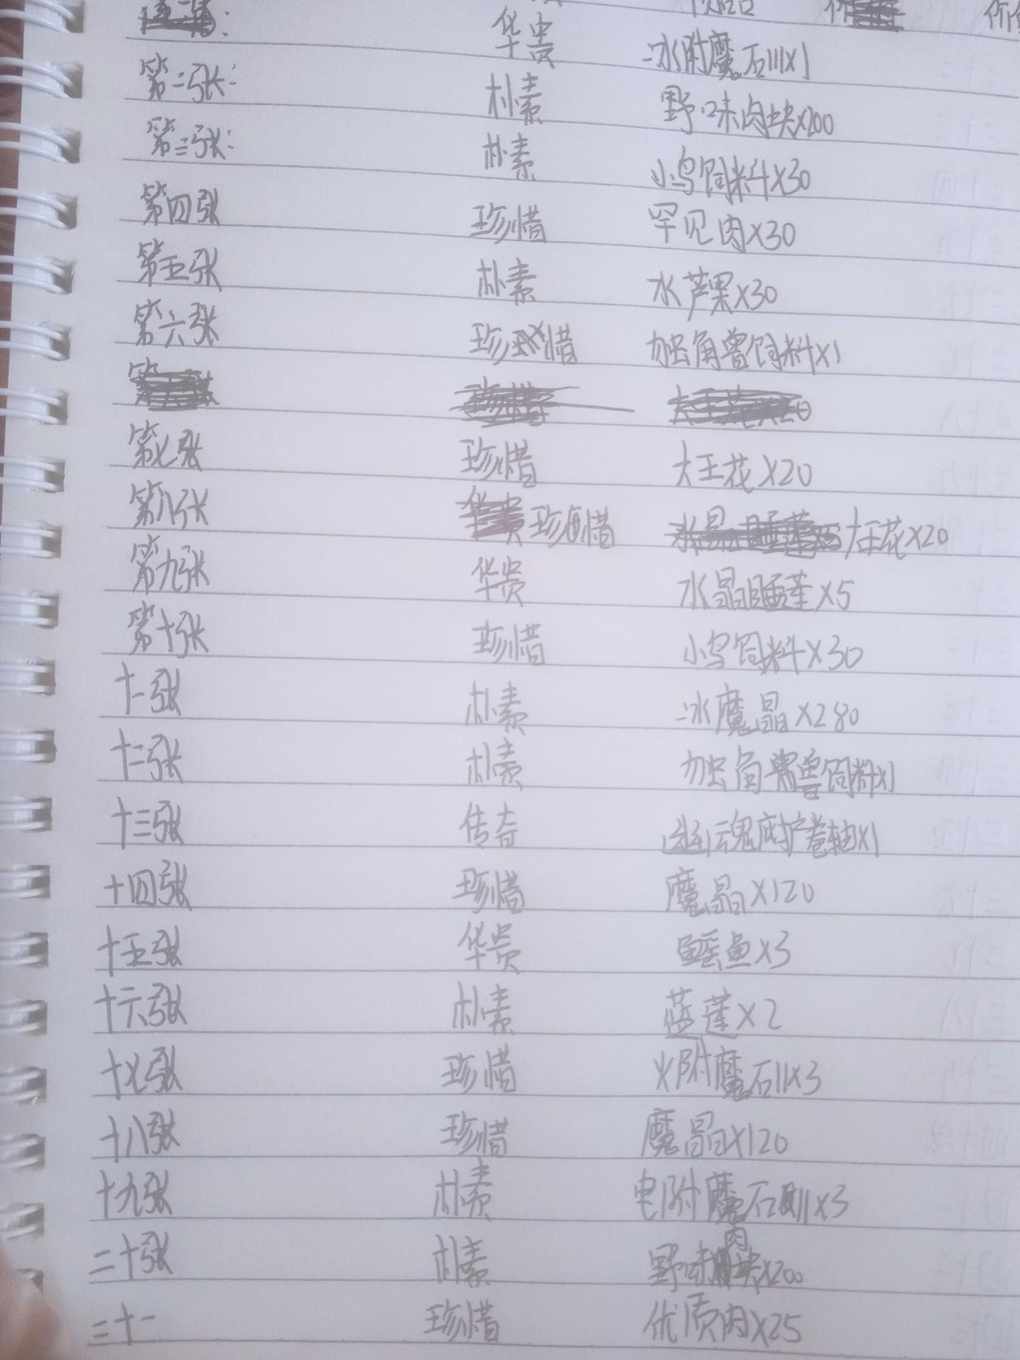 华贵 冰附魔石III×1
第二张: 朴素 野味肉块×200
第三张: 朴素 小鸟饲料×30
第四张 珍惜 罕见肉×30
第五张 朴素 水芦果×30
第六张 珍惜 独角兽饲料×1
第七张 珍惜 大王花×20
第八张 珍惜 大王花×20
第九张 华贵 水晶睡莲×5
第十张 珍惜 小鸟饲料×30
十一张 朴素 冰魔晶×280
十二张 朴素 独角兽饲料×1
十三张 传奇 幽魂庇护卷轴×1
十四张 珍惜 魔晶×120
十五张 华贵 鳐鱼×3
十六张 朴素 蓝莲×2
十七张 珍惜 火附魔石II×3
十八张 珍惜 魔晶×120
十九张 朴素 电附魔石×3
二十张 朴素 野味肉块×200
二十一 珍惜 优质肉×25